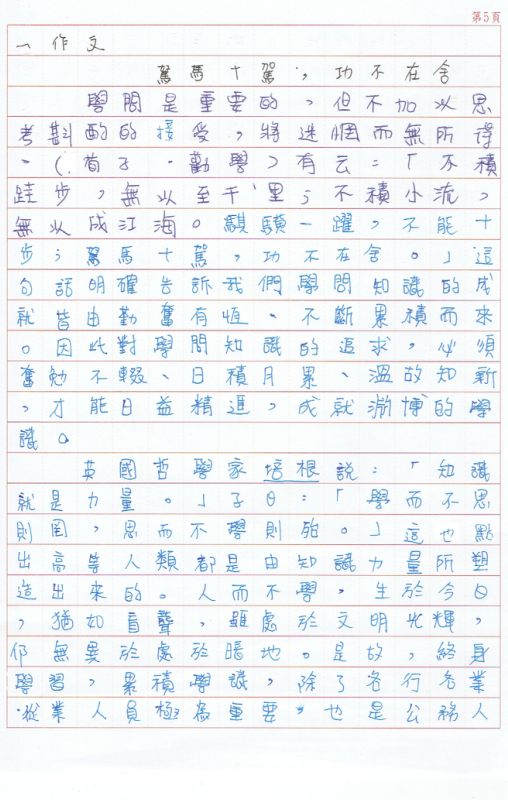 第5頁
一 作文
駑馬十駕,功不在舍
學問是重要的,但不加以思
考斟酌的接受,將迷惘而無所得
。(荀子.勸學)有云:「不積
跬步,無以至千里;不積小流,
無以成江海。騏驥一躍,不能十
步;駑馬十駕,功不在舍。」這
句話明確告訴我們學問知識的成
就皆由勤奮有恆、不斷累積而來
。因此對學問知識的追求,必須
奮勉不輟、日積月累、溫故知新
,才能日益精進,成就淵博的學
識。
英國哲學家培根說:「知識
就是力量。」子曰:「學而不思
則罔,思而不學則殆。」這也點
出高等人類都是由知識力量所塑
造出來的。人而不學,生於今日
,猶如盲聾,雖處於文明光輝,
仍無異於處於暗地。是故,終身
學習,累積學識,除了各行各業
從業人員極為重要,也是公務人